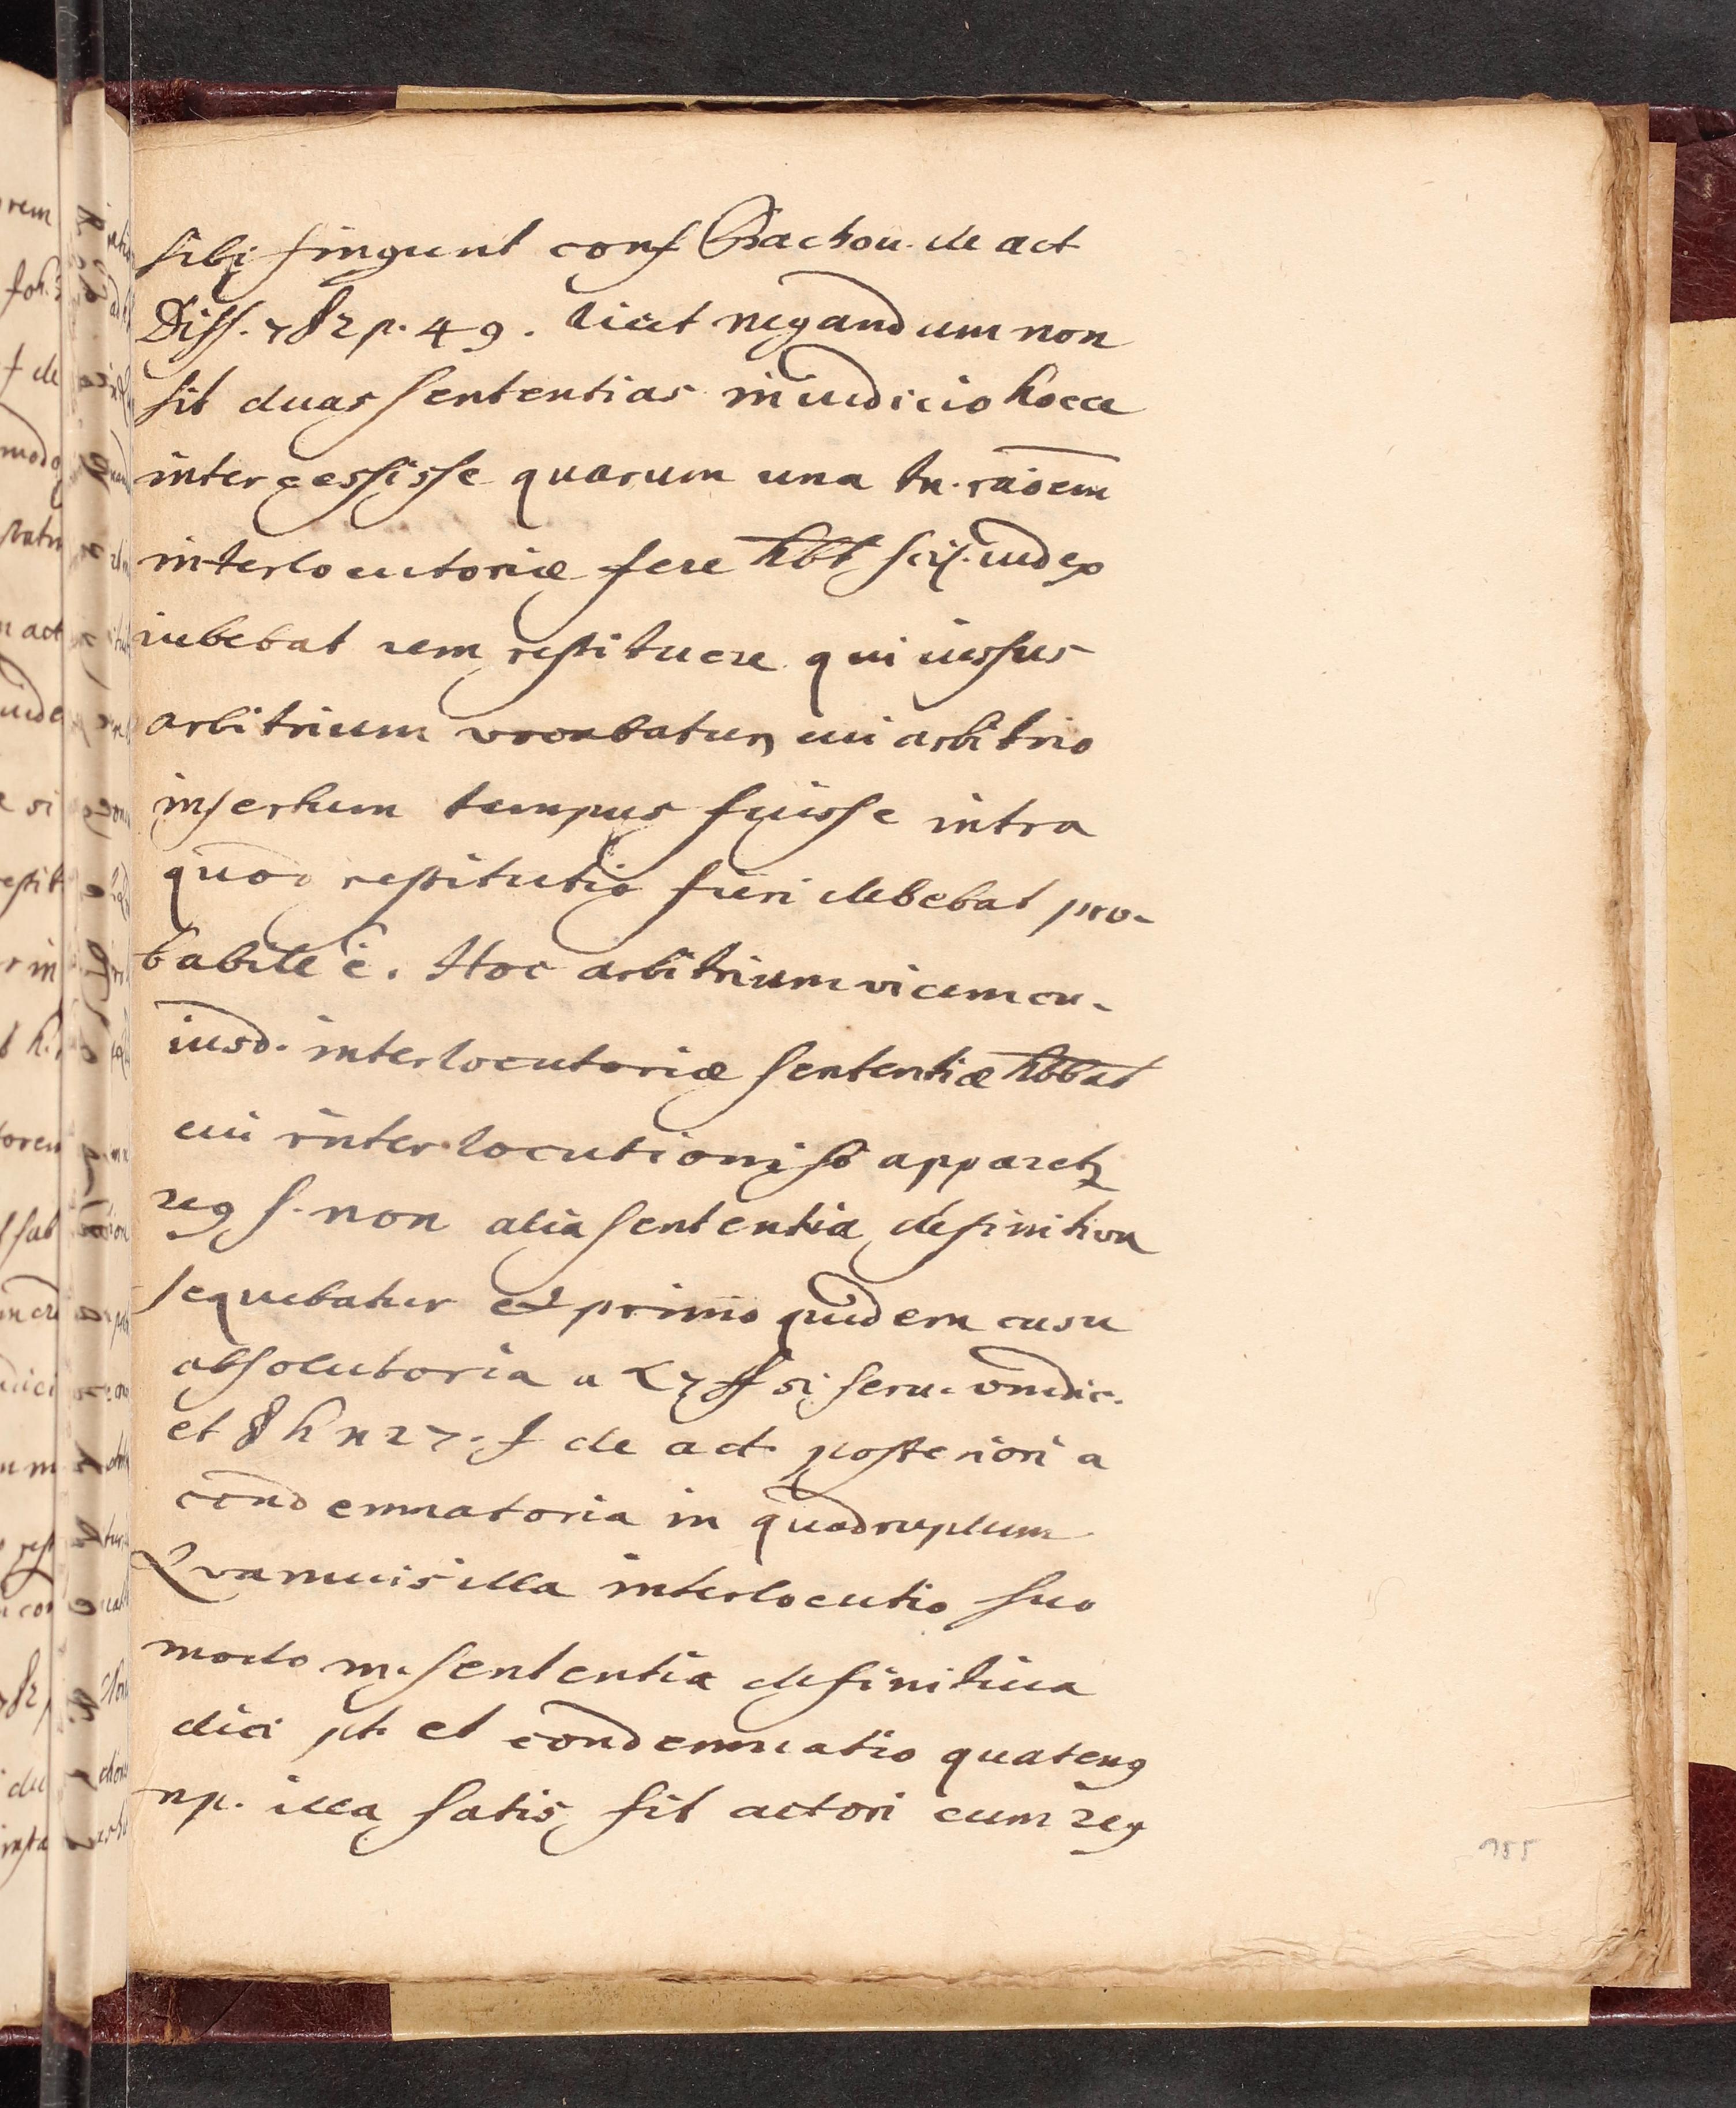 sibi fingunt conf Bachou. de act
Diss. 7 § 2 p. 49. licet negandum non
sit duas sententias in iudicio hocce
intercessisse quarum una tn. raōem
interlocutoriæ fere hbt scil. iudex
iubebat rem restituere qui iussus
arbitrium vocabatur, cui arbitrio
insertum tempus fuisse intra
quod restitutio fieri debebat pro-
babile ē. Hoc arbitrium vicem cu-
iusd. interlocutoriæ sententiæ hbbat
cui interlocutioni si apparet
reg s. non alia sententia definitiva
sequebatur et primo quidem casu
absolutoria a L 7 ff si seru. vindic.
et § h n 27. J de act. posteriori a
condemnatoria in quadruplum
Quamuis illa interlocutio suo
modo m. sententia definitiua
dici pt. et condemnatio quateng
np. illa satis fit actori cum reg
155